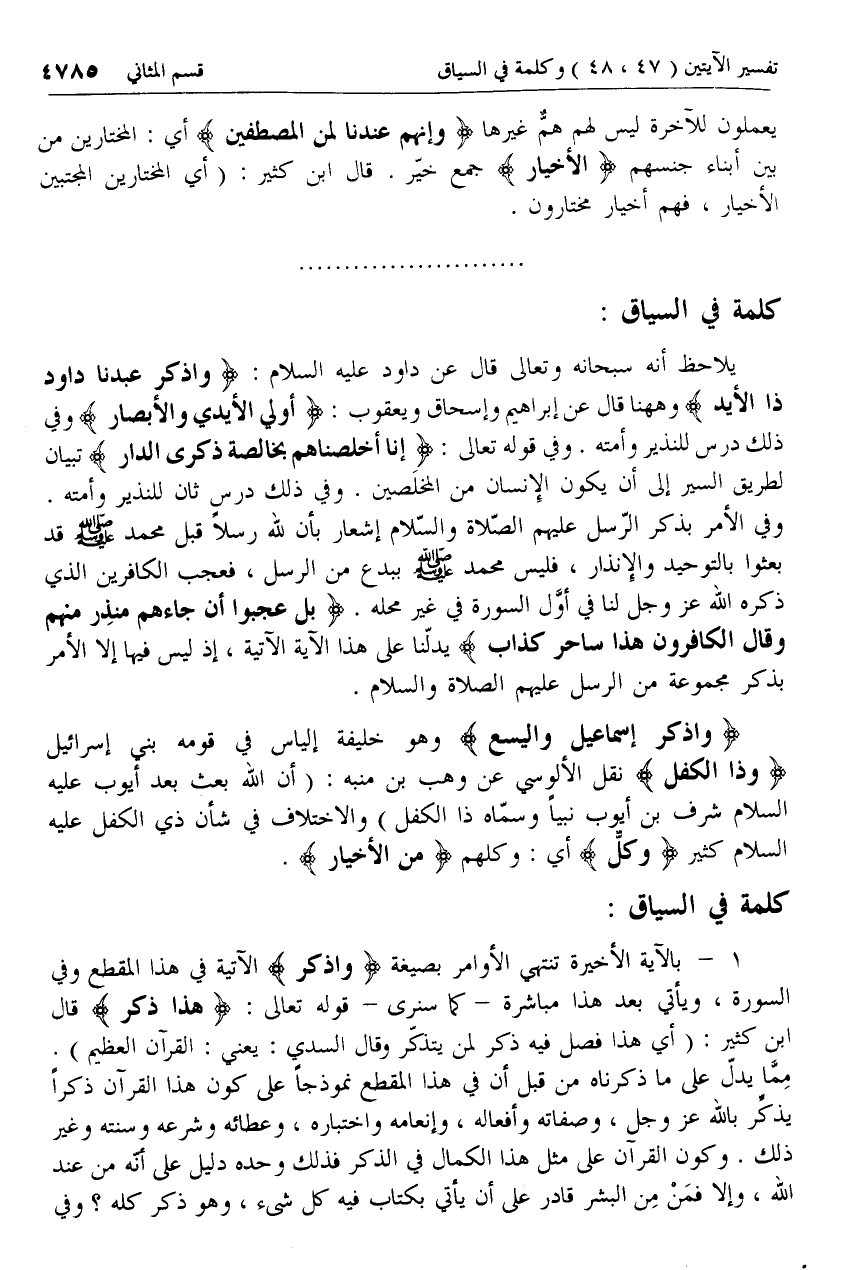 تفسير الآيتين ( ٤٧ ، ٤٨ ) وكلمة في السياق قسم المثاني ٤٧٨٥
يعملون للآخرة ليس لهم همٌّ غيرها ﴿ وإنهم عندنا لمن المصطفين ﴾ أي : المختارين من
بين أبناء جنسهم ﴿ الأخيار ﴾ جمع خيّر . قال ابن كثير : ( أي المختارين المجتبين
الأخيار ، فهم أخيار مختارون .
.........................
كلمة في السياق :
يلاحظ أنه سبحانه وتعالى قال عن داود عليه السلام : ﴿ واذكر عبدنا داود
ذا الأيد ﴾ وههنا قال عن إبراهيم وإسحاق ويعقوب : ﴿ أولي الأيدي والأبصار ﴾ وفي
ذلك درس للنذير وأمته . وفي قوله تعالى : ﴿ إنا أخلصناهم بخالصة ذكرى الدار ﴾ تبيان
لطريق السير إلى أن يكون الإنسان من المخلَصين . وفي ذلك درس ثان للنذير وأمته .
وفي الأمر بذكر الرّسل عليهم الصّلاة والسّلام إشعار بأن لله رسلاً قبل محمد ﷺ قد
بعثوا بالتوحيد والإنذار ، فليس محمد ﷺ ببدع من الرسل ، فعجب الكافرين الذي
ذكره الله عز وجل لنا في أوَّل السورة في غير محله . ﴿ بل عجبوا أن جاءهم منذِر منهم
وقال الكافرون هذا ساحر كذاب ﴾ يدلّنا على هذا الآية الآتية ، إذ ليس فيها إلا الأمر
بذكر مجموعة من الرسل عليهم الصلاة والسلام .
﴿ واذكر إسماعيل واليسع ﴾ وهو خليفة إلياس في قومه بني إسرائيل
﴿ وذا الكفل ﴾ نقل الألوسي عن وهب بن منبه : ( أن الله بعث بعد أيوب عليه
السلام شرف بن أيوب نبياً وسمّاه ذا الكفل ) والاختلاف في شأن ذي الكفل عليه
السلام كثير ﴿ وكلٌّ ﴾ أي : وكلهم ﴿ من الأخيار ﴾ .
كلمة في السياق :
١ – بالآية الأخيرة تنتهي الأوامر بصيغة ﴿ واذكر ﴾ الآتية في هذا المقطع وفي
السورة ، ويأتي بعد هذا مباشرة – كما سنرى – قوله تعالى : ﴿ هذا ذكر ﴾ قال
ابن كثير : ( أي هذا فصل فيه ذكر لمن يتذكّر وقال السدي : يعني : القرآن العظيم ) .
مِمَّا يدلّ على ما ذكرناه من قبل أن في هذا المقطع نموذجاً على كون هذا القرآن ذكراً
يذكِّر بالله عز وجل ، وصفاته وأفعاله ، وإنعامه واختباره ، وعطائه وشرعه وسنته وغير
ذلك . وكون القرآن على مثل هذا الكمال في الذكر فذلك وحده دليل على أنّه من عند
الله ، وإلا فمَنْ مِن البشر قادر على أن يأتي بكتاب فيه كل شىء ، وهو ذكر كله ؟ وفي